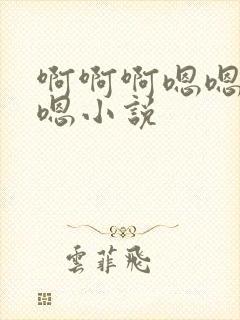 啊啊啊嗯嗯
嗯小説
雲菲飛